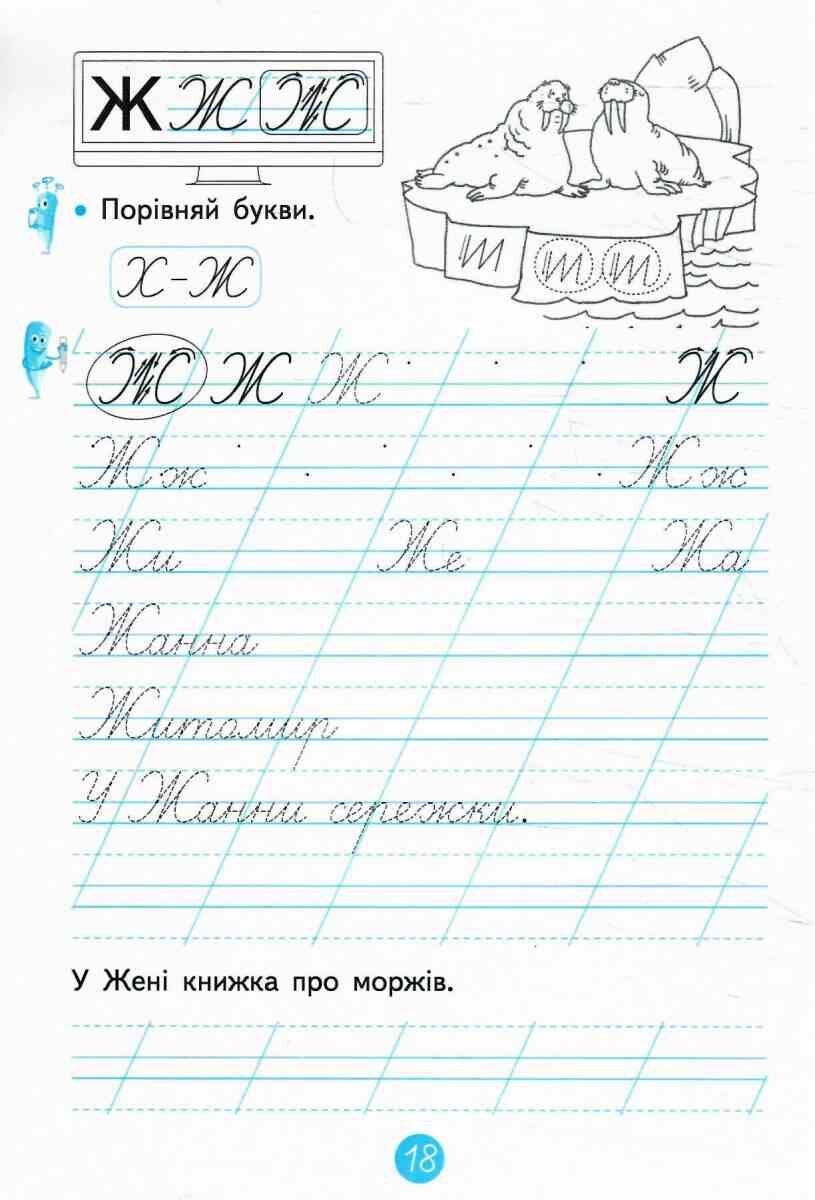 Ж Ж Ж
Порівняй букви.
Х – Ж
Ж Ж Ж Ж
Жж Жж
Жи Же Жа
Жанна
Житомир
У Жанни сережки.
У Жені книжка про моржів.
18